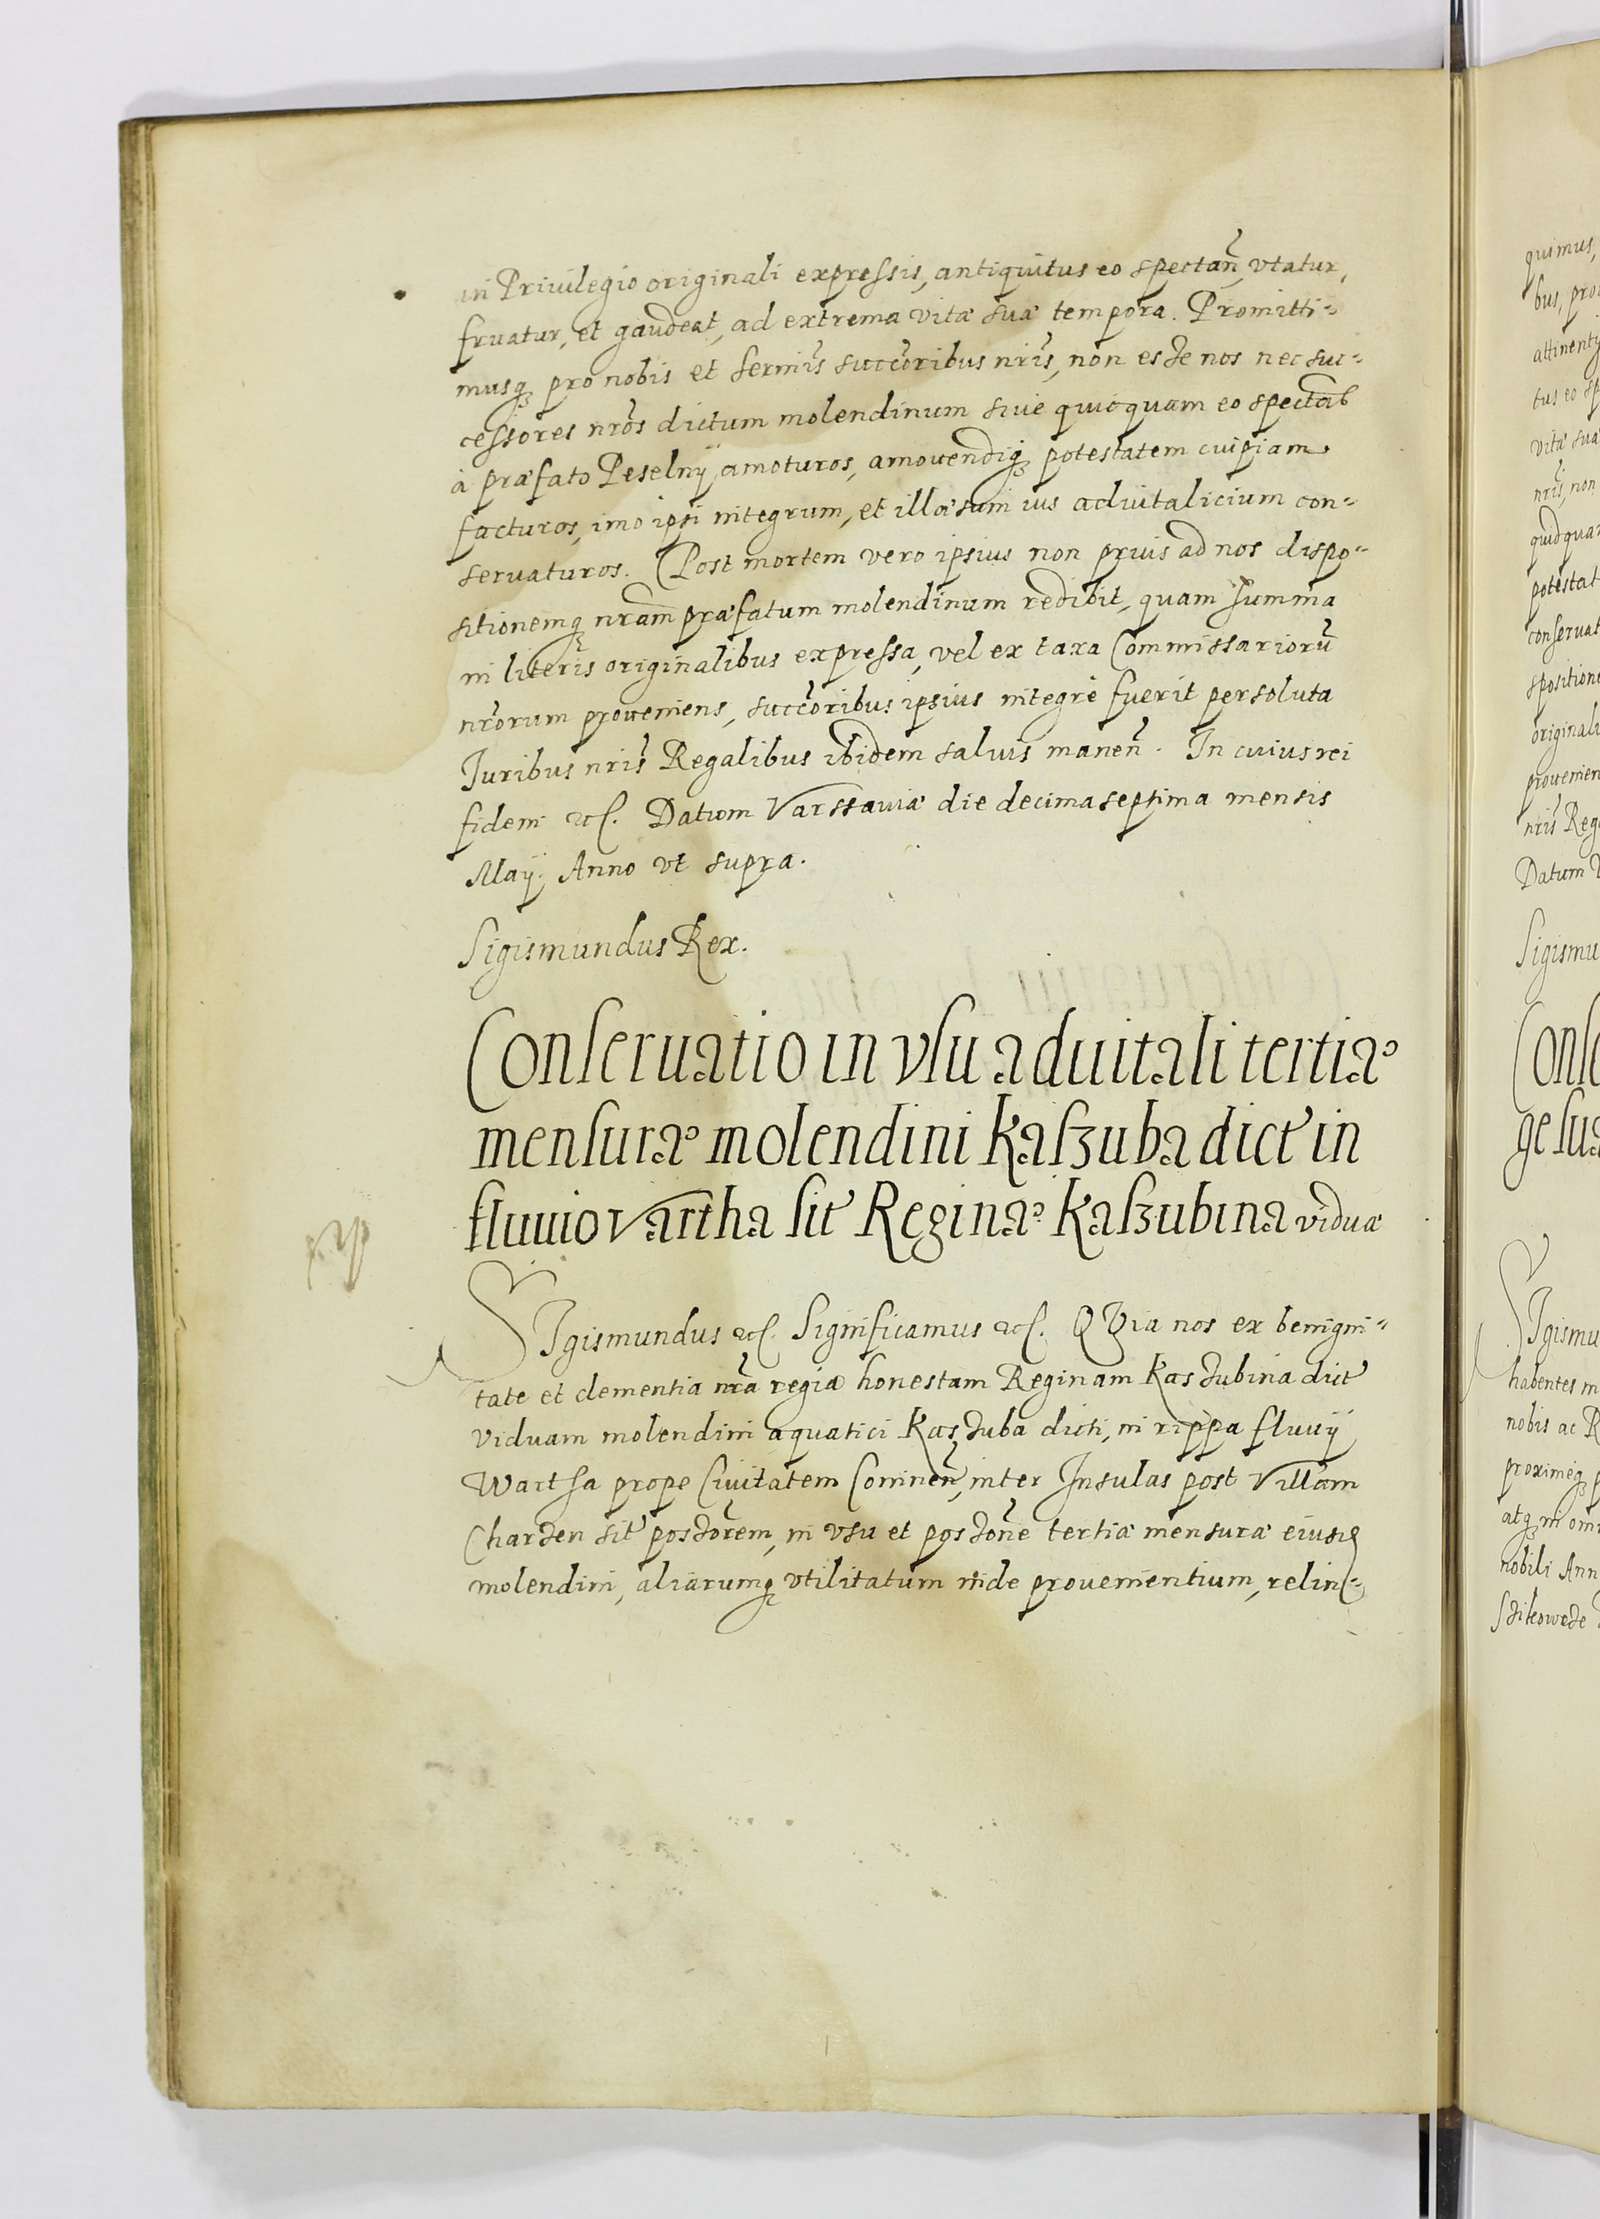 in Priuilegio originali expressis, antiquitus eo spectan̄, vtatur,
fruatur, et gaudeat, ad extrema vitæ suæ tempora. Promitti-
musq̨ pro nobis et sermis succoribus nris, non esse nos nec suc-
cessores nros dictum molendinum siue quicquam eo spectab
à præfato Peselny amoturos, amouendiq̨ potestatem cuipiam
facturos, imo ipsi integrum, et illæsum ius aduitalicium con-
seruaturos. Post mortem vero ipsius non prius ad nos dispo-
sitionemq̨ nram præfatum molendinum redibit, quam summa
in literis originalibus expressa, vel ex taxa Commissariorū
nrorum proueniens, succoribus ipsius integrè fuerit persoluta
Juribus nris Regalibus ibidem saluis manen̄. In cuius rei
fidem etc. Datum Varssauiæ die decima septima mensis
Maij. Anno vt supra.
Sigismundus Rex.
Conseruatio in vsu aduitali tertiæ
mensuræ molendini Kaszuba dict in
fluuio Vartha sit Reginæ Kaszubina viduæ
SIgismundus etc. Significamus etc. QVia nos ex benigni-
tate et clementia nra regia honestam Reginam Kaszubina dict
viduam molendini aquatici Kaszuba dicti, in rippa fluuij
Wartha prope Ciuitatem Coninen̄, inter Insulas post Villam
Charzen sit poszorem, in vsu et poszone tertiæ mensuræ eiusd
molendini, aliarumq̨ vtilitatum inde prouenientium, relin-
quimus,
bus, pro
attinentij
tus eo sp
vitæ suæ
nris, non
quidquam
potestat
conseruat
spositione
originali
prouenien
nris Reg
Datum V
Sigismu
Conse
ge sua
SIgismu
habentes in
nobis ac R
proximeq̨ p
atq̨ in omn
nobili Ann